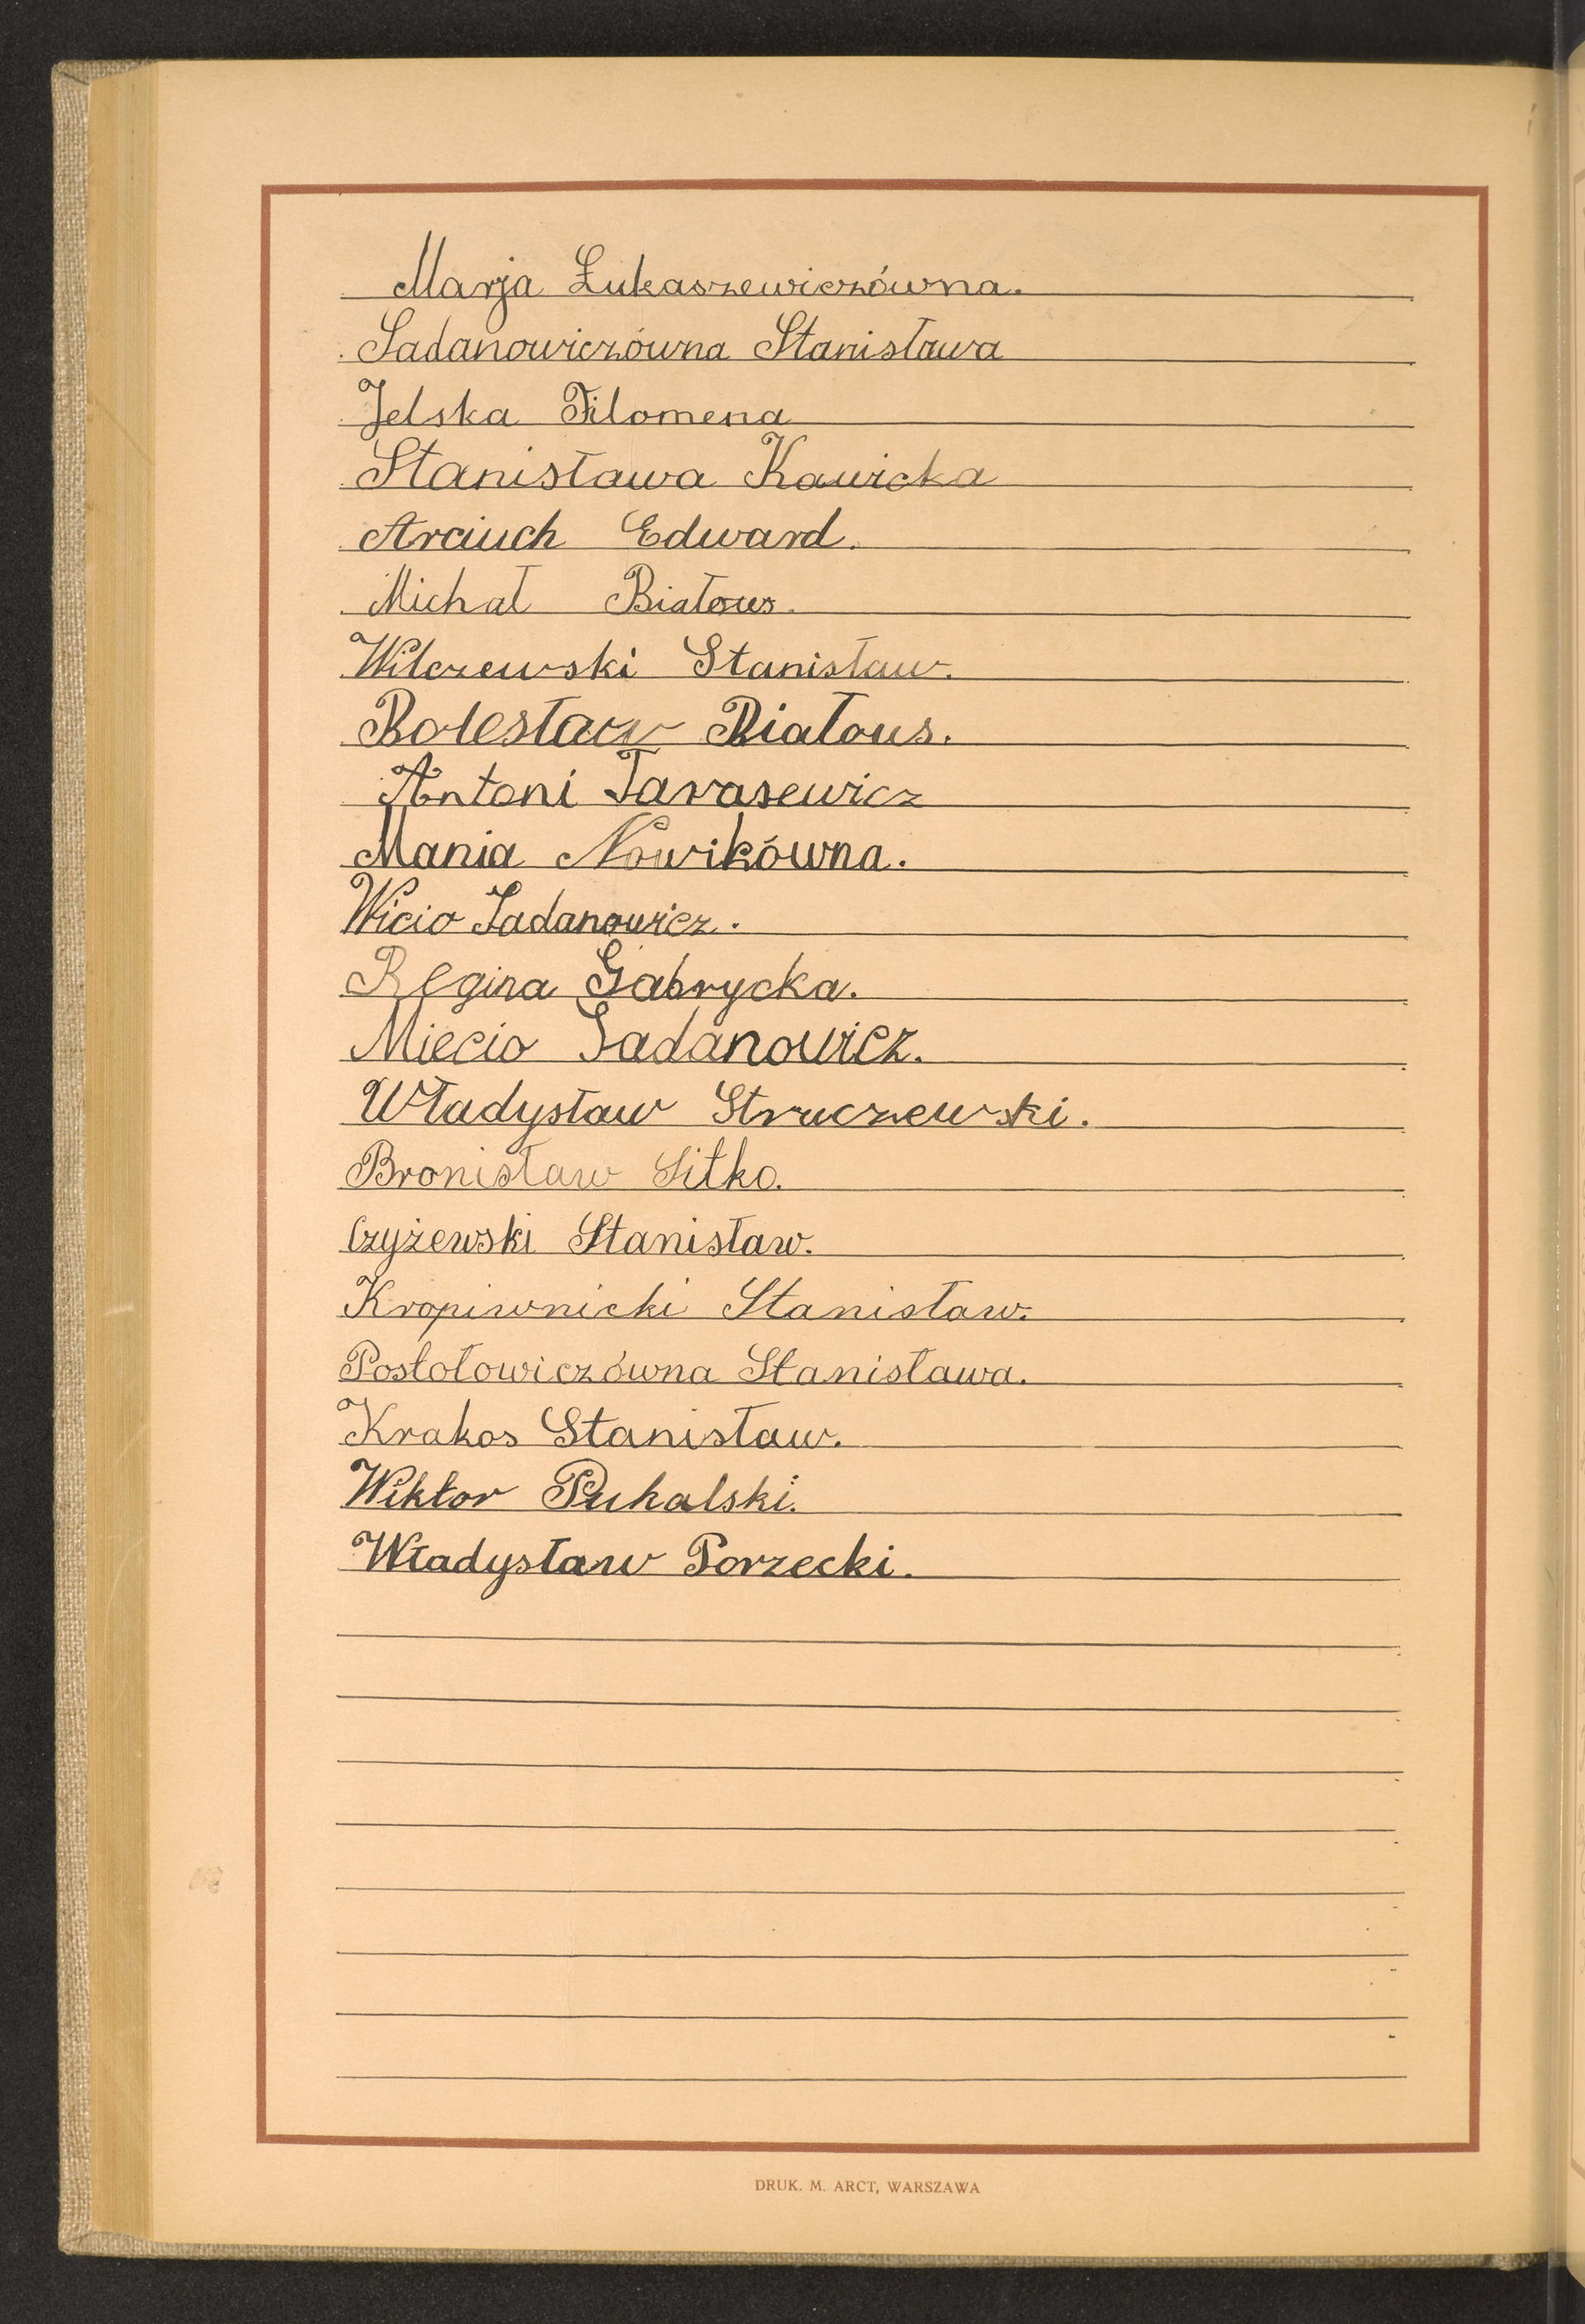 Marja Łukaszewiczówna.
Sadanowiczówna Stanisława
Jelska Filomena
Stanisława Kawicka
Arciuch Edward.
Michał Białous.
Wilczewski Stanisław.
Bolesław Białous.
Antoni Tarasewicz
Mania Nowikówna.
Wicio Sadanowicz.
Regina Gabrycka.
Miecio Sadanowicz.
Władysław Struczewski.
Bronisław Sitko.
Czyżewski Stanisław.
Kropiwnicki Stanisław.
Postołowiczówna Stanisława.
Krakos Stanisław.
Wiktor Puhalski.
Władysław Porzecki.
DRUK. M. ARCT, WARSZAWA